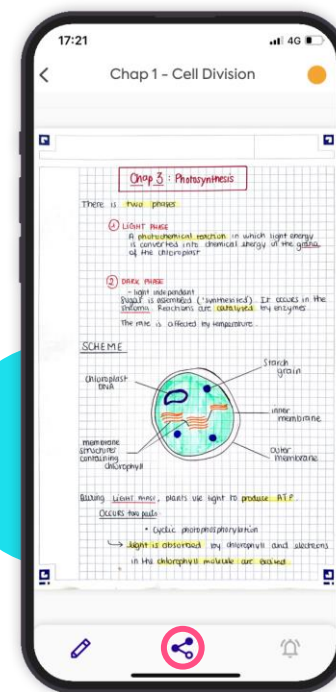 17:21
4G
Chap 1 - Cell Division
Chap 3 : Photosynthesis
There is two phases
1 LIGHT PHASE
A photochemical reaction in which light energy
is converted into chemical energy in the grana
of the chloroplast
2 DARK PHASE
- light independant
Sugar is assembled ("synthesised"). It occurs in the
stroma. Reactions are catalysed by enzymes
The rate is affected by temperature.
SCHEME
chloroplast
DNA
Starch
grain
inner
membrane
membrane
structures
containing
chlorophyll
outer
membrane
During Light phase, plants use light to produce ATP.
OCCURS two paths
• Cyclic photophosphorylation
↳ light is absorbed by chlorophyll and electrons
in the chlorophyll molecule are excited